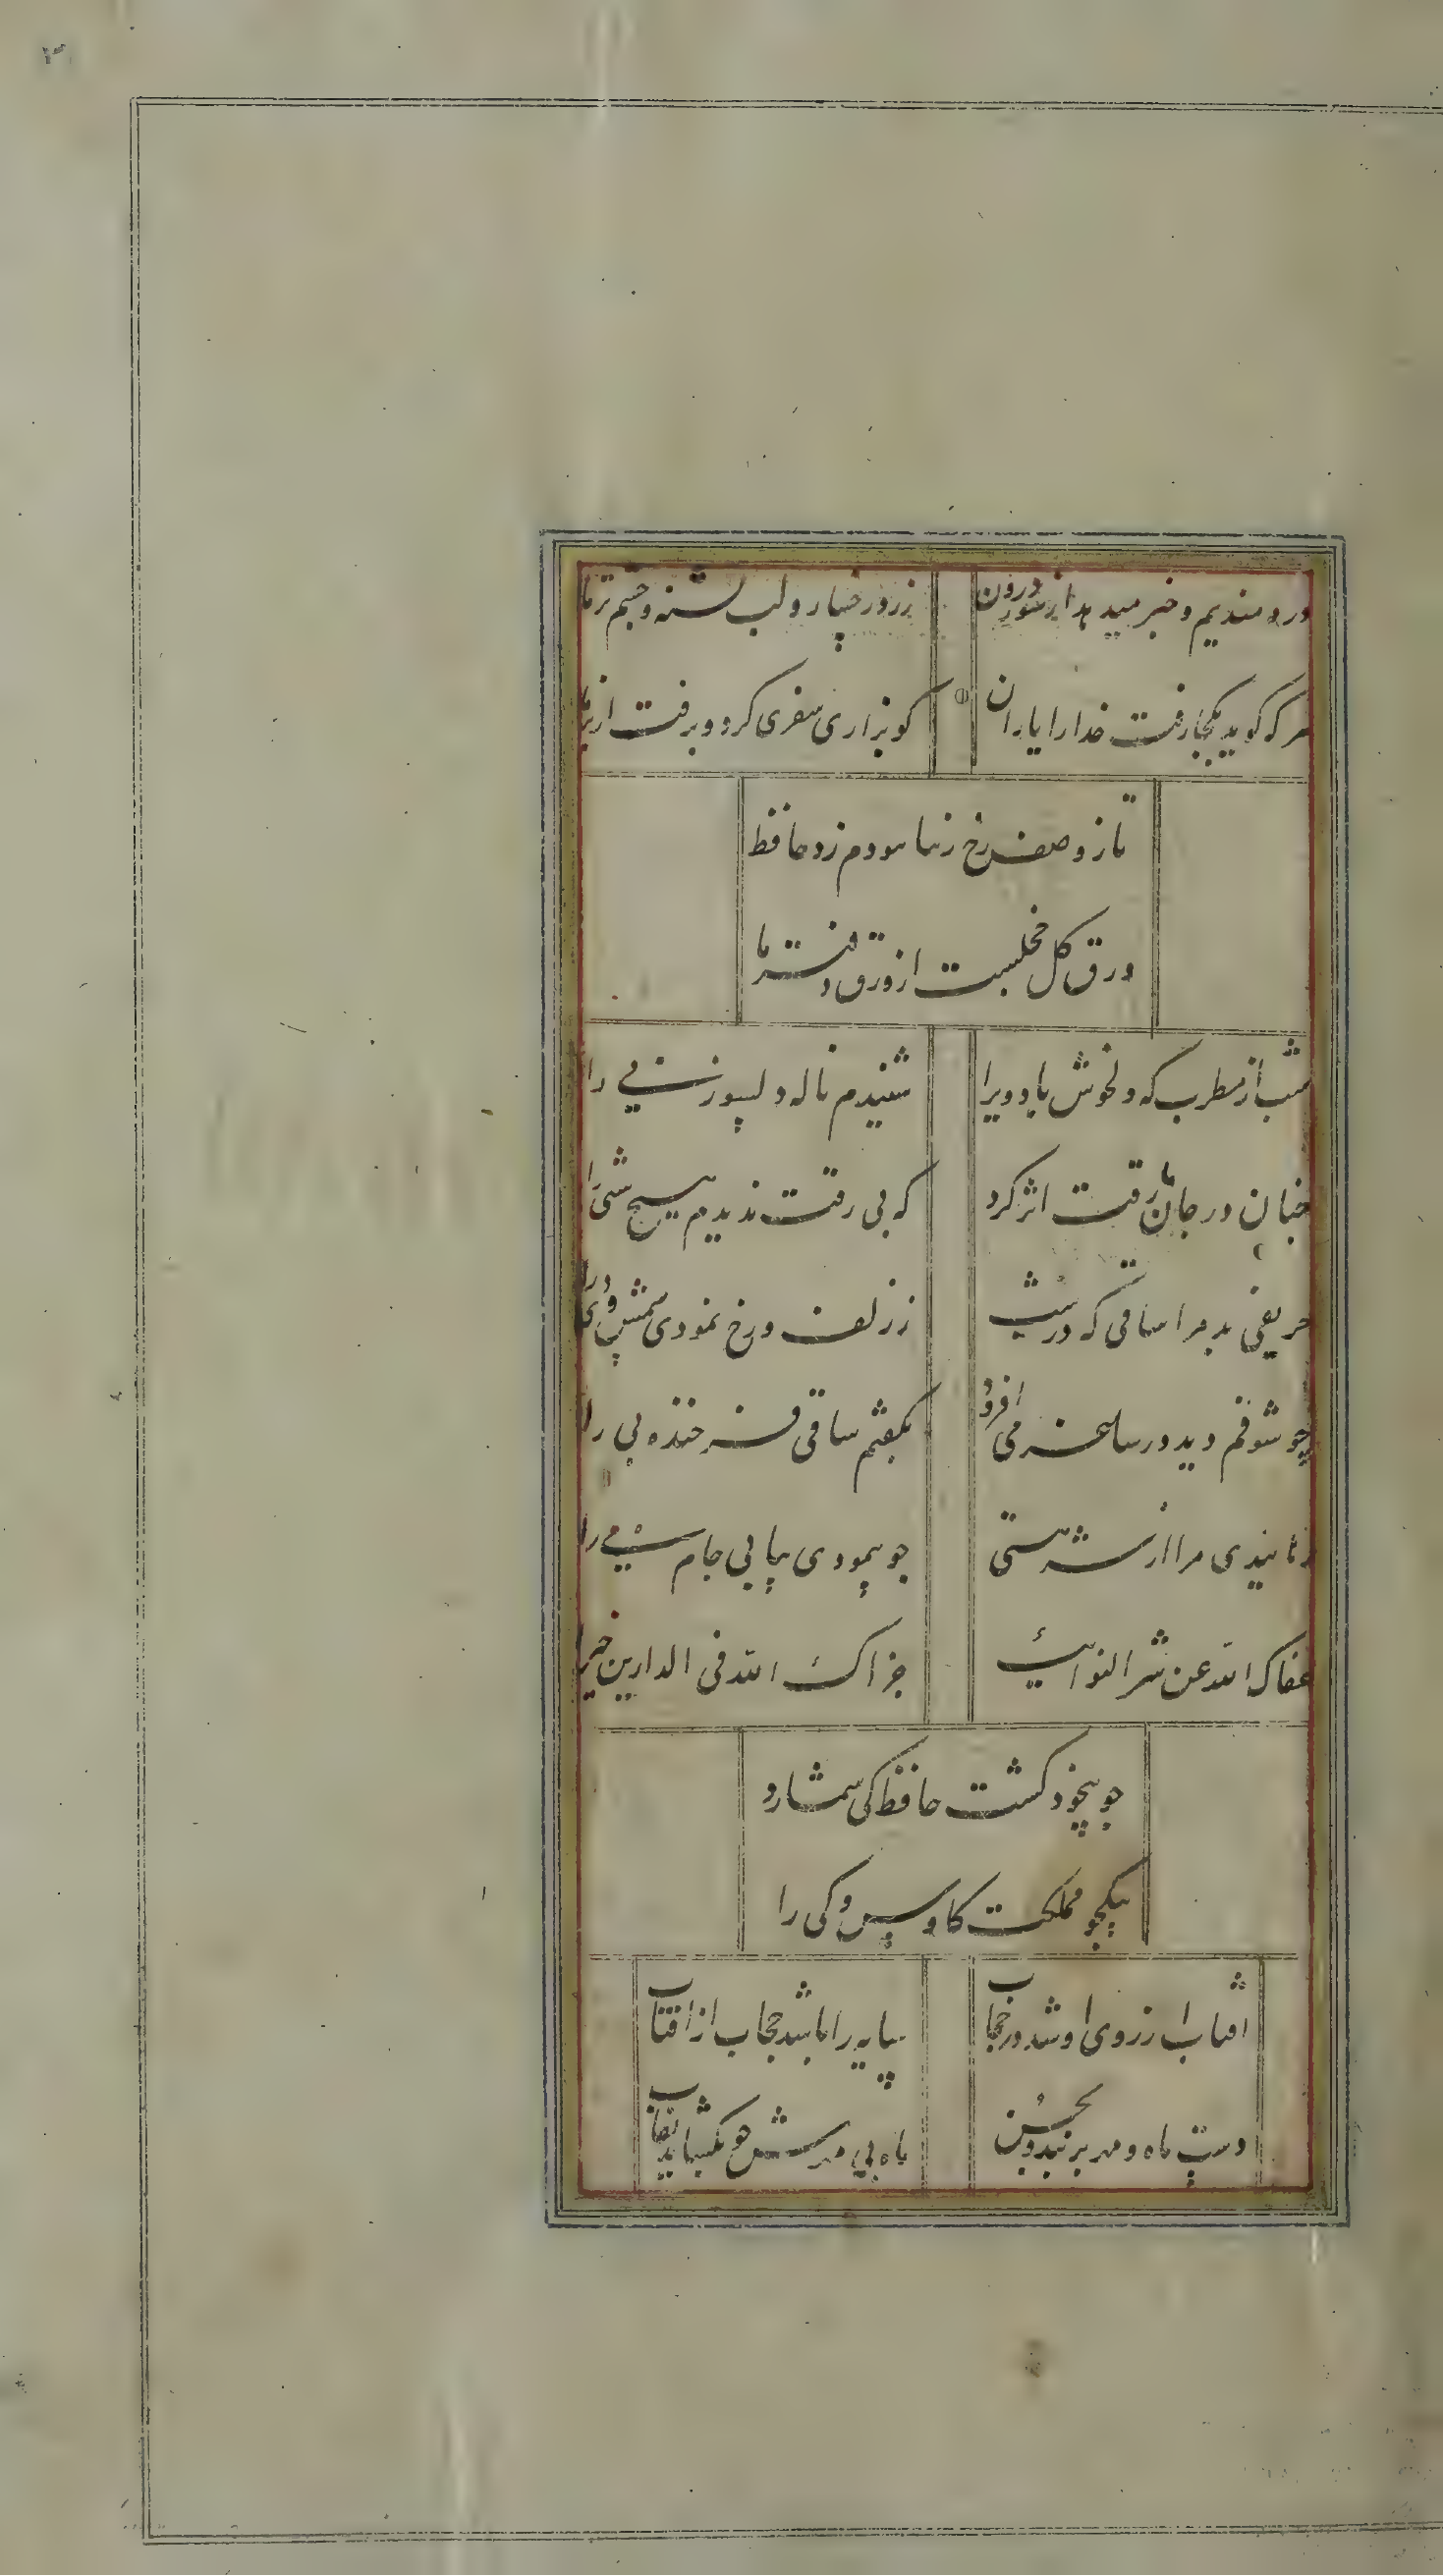 دردمندیم و خبر میدهد از سوز درون
زردرخسار و لب تشنه و چشم تر ما
هر که کوید بکجا رفت خدا را یاران
کو بزاری سفری کرد و برفت از بر ما
تا ز وصف رخ زیبا سودم زد حافظ
ورق کل خجلست از ورق دفتر ما
شب از مطرب که دلخوش باد ویرا
شنیدم ناله دلسوز نی را
چنان در جان ما رقت اثر کرد
که بی رقت ندیدم هیچ شی را
حریفی بد مرا ساقی که در شب
ز زلف و رخ نمودی شمس و دی را
چو شوقم دید در ساغر می افزود
بکفتم ساقی فرخنده پی را
رهانیدی مرا از شر هستی
چو پیمودی پیاپی جام می را
عفاک الله عن شر النوائب
جزاک الله فی الدارین خیرا
چو بیخود کشت حافظ کی شمارد
بیکجو مملکت کاوس و کی را
افتاب از روی او شد در حجاب
سایه را باشد حجاب از افتاب
دست ماه و مهر بربندد بحسن
ماه بی مهرش چو بکشاید نقاب